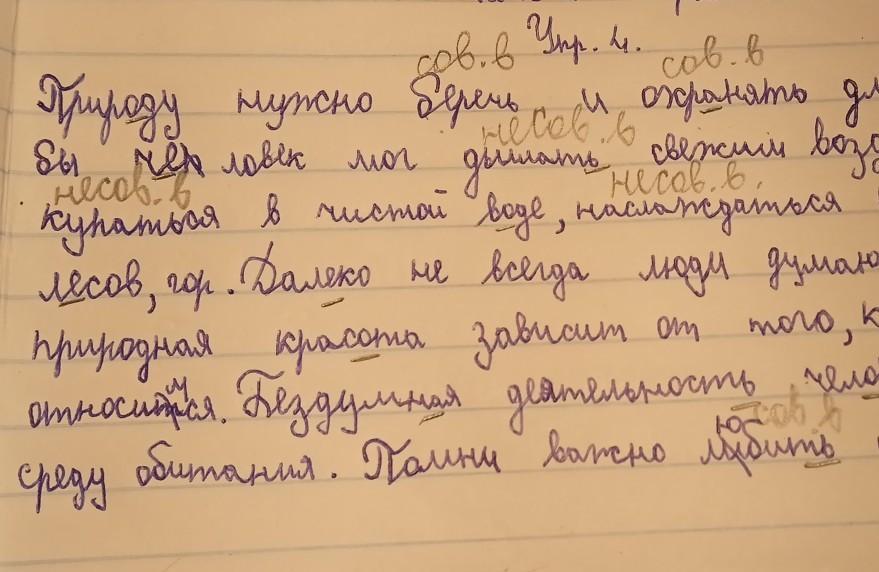 Упр. 4.
сов. в сов. в
Природу нужно беречь и охранять дл
несов. в
бы человек мог дышать свежим возд
несов. в несов. в.
купаться в чистой воде, наслаждаться
лесов, гор. Далеко не всегда люди думаю
природная красота зависит от того, к
относимся. Бездумная деятельность чело
сов. в
среду обитания. Помни важно любить